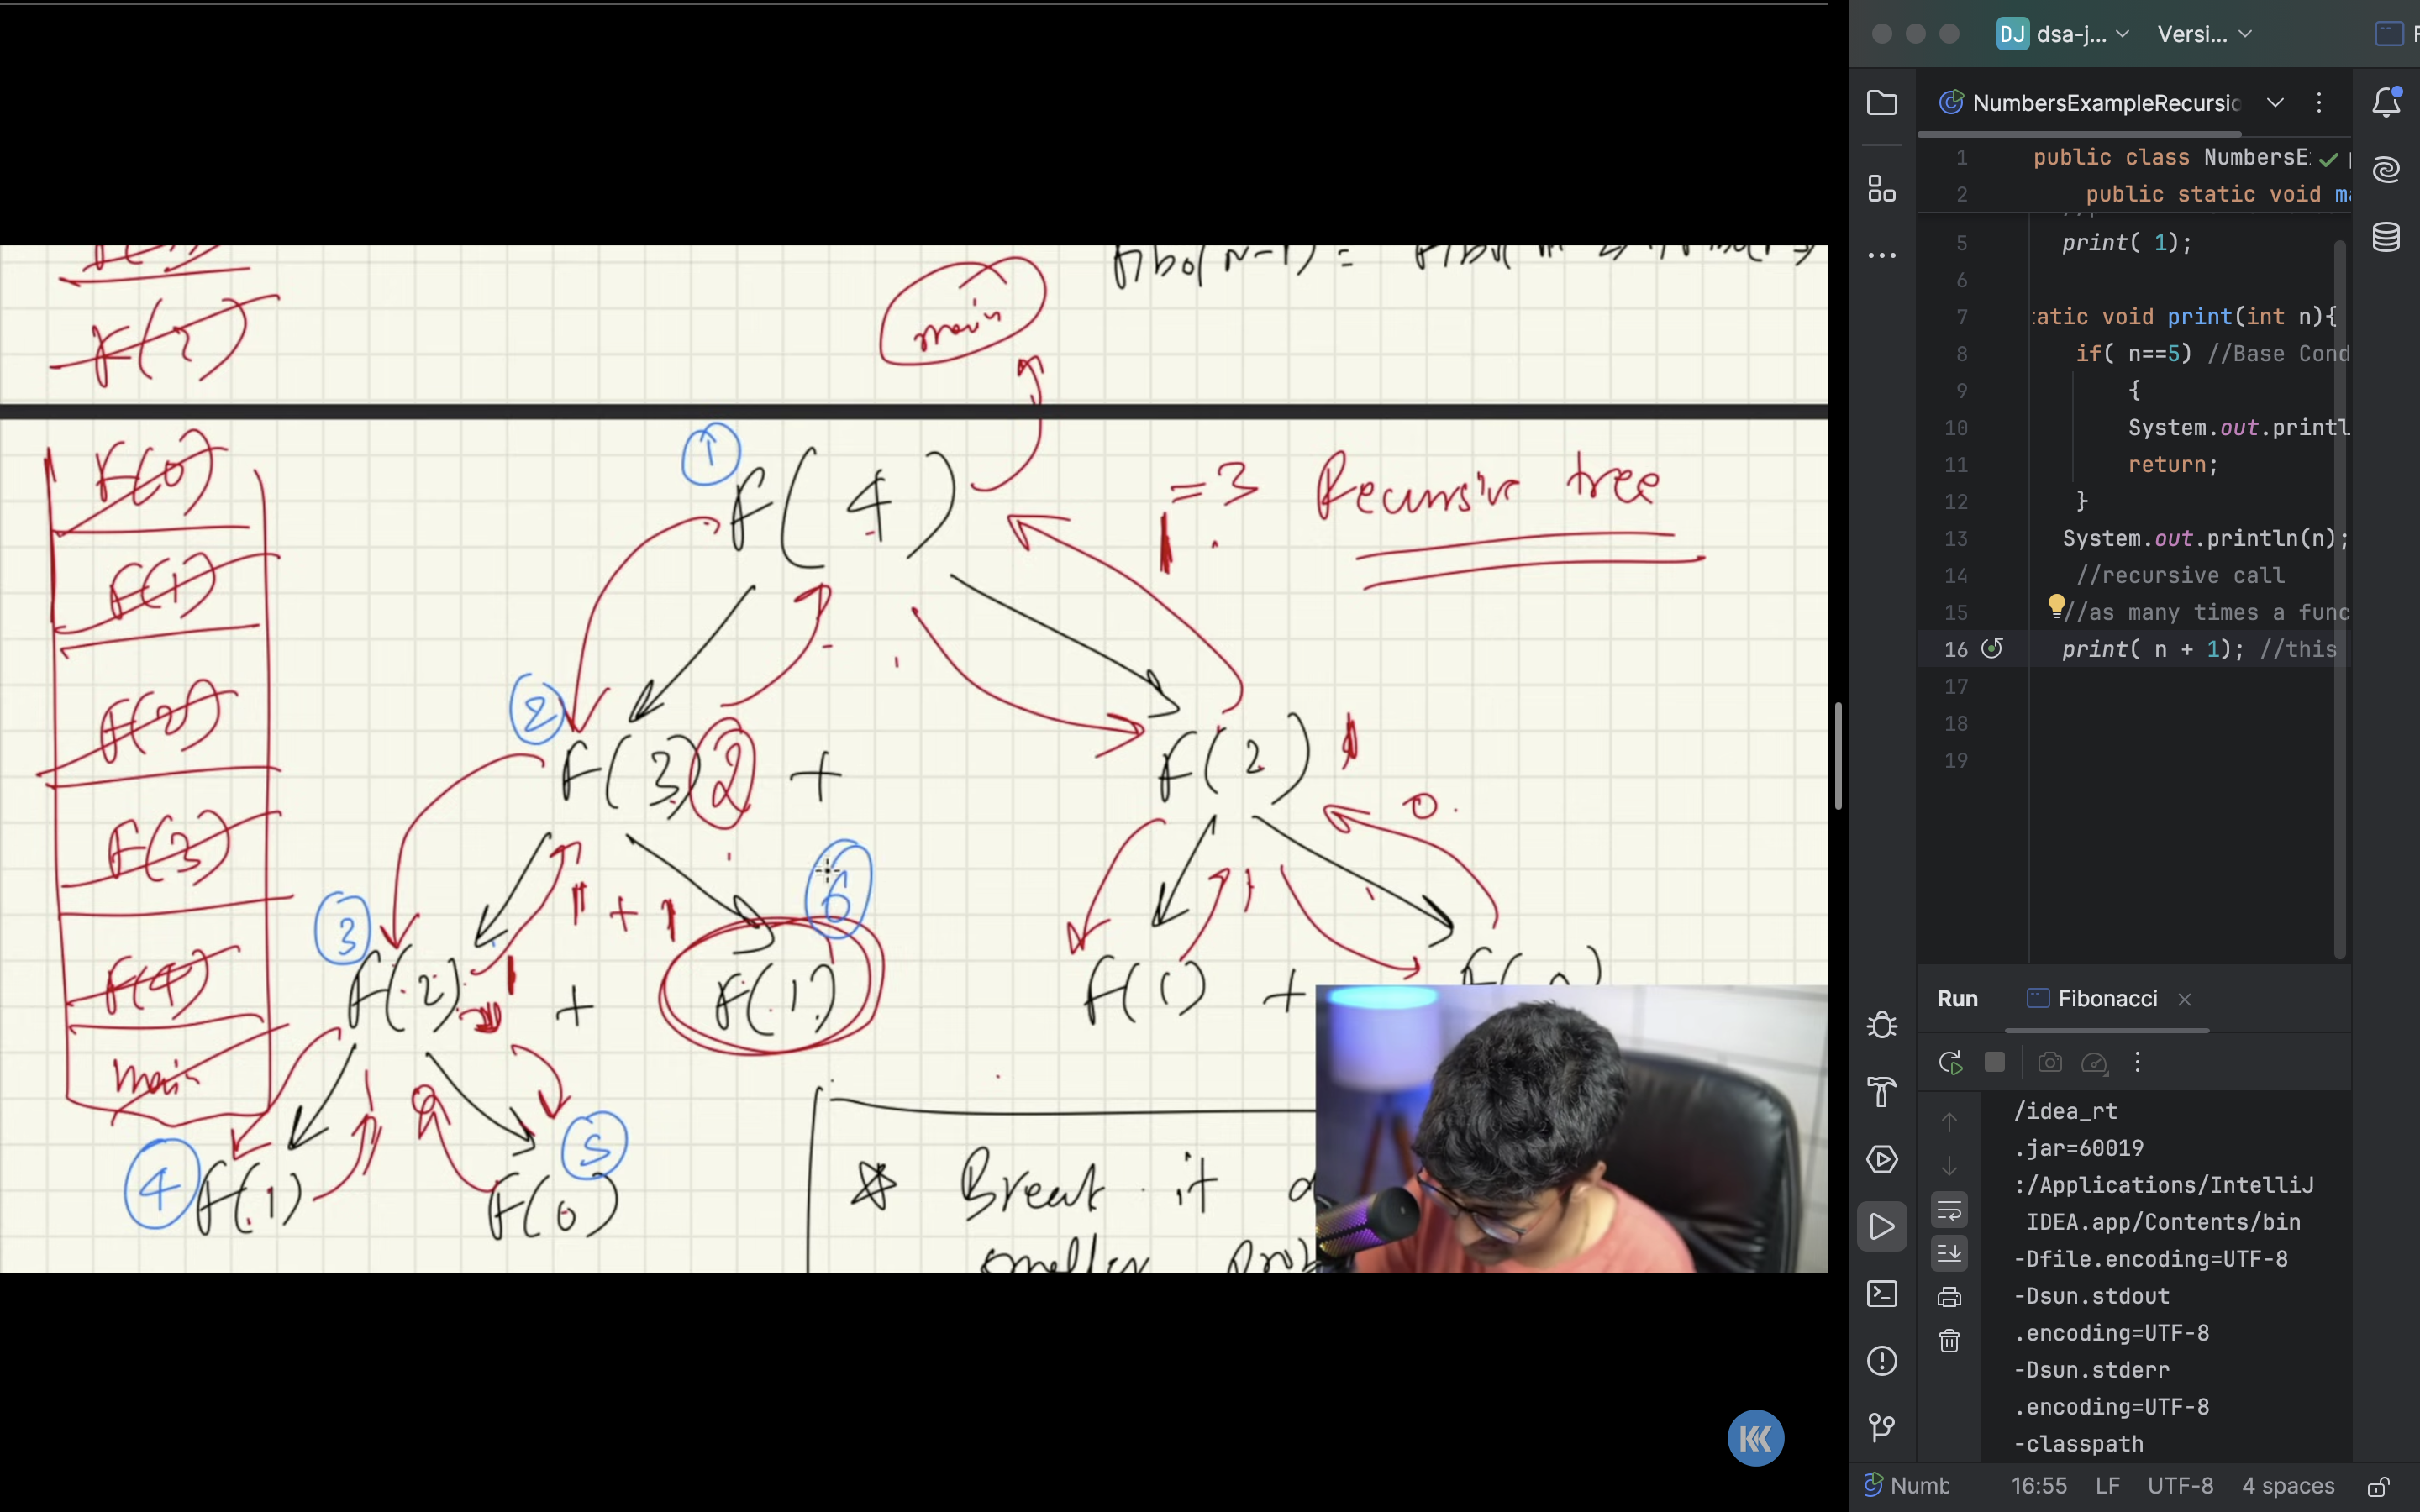 F(2)
main
F(0)
F(1)
F(2)
F(3)
F(4)
main
1
F(4)
=3 Recursive tree
2
F(3) 2 +
F(2) 1
0
3
1 + 1
6
1
F(2) 1
+
F(1)
F(1) +
1
0
4
F(1)
5
F(0)
Break it
smaller
KK
DJ dsa-j... Versi...
NumbersExampleRecursio
1 public class NumbersE
2 public static void ma
5 print( 1);
6
7 atic void print(int n){
8 if( n==5) //Base Cond
9 {
10 System.out.printl
11 return;
12 }
13 System.out.println(n);
14 //recursive call
15 //as many times a func
16 print( n + 1); //this
17
18
19
Run Fibonacci
/idea_rt
.jar=60019
:/Applications/IntelliJ
IDEA.app/Contents/bin
-Dfile.encoding=UTF-8
-Dsun.stdout
.encoding=UTF-8
-Dsun.stderr
.encoding=UTF-8
-classpath
Numb 16:55 LF UTF-8 4 spaces